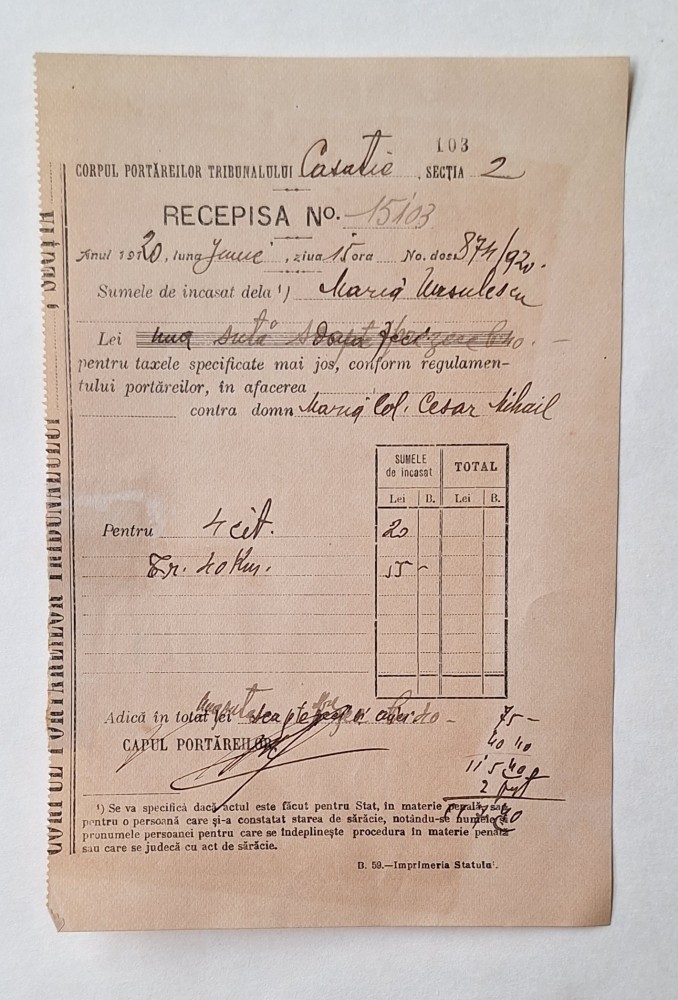 103
CORPUL PORTĂREILOR TRIBUNALULUI Casatie, SECȚIA 2
RECEPISA No. 15103
Anul 1920, luna Junie, ziua 15 ora No. dos. 874/920.
Sumele de incasat dela ¹) Maria Ursulescu
Lei una sută
pentru taxele specificate mai jos, conform regulamen-
tului portăreilor, în afacerea
contra domn Maria Col. Cesar Mihail
SUMELE de incasat TOTAL
Lei B. Lei B.
Pentru 4 cit. 20
Tr. 40 Km. 55 -
Adică în total lei
75 -
CAPUL PORTĂREILOR
40 40
115 40
2
¹) Se va specifică dacă actul este făcut pentru Stat, în materie penală, sau
pentru o persoană care și-a constatat starea de sărăcie, notându-se numele și
pronumele persoanei pentru care se îndeplinește procedura în materie penală
sau care se judecă cu act de sărăcie.
B. 59.—Imprimeria Statului.
CORPUL PORTĂREILOR TRIBUNALULUI , SECȚIA